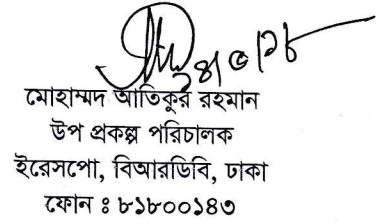 মোহাম্মদ আতিকুর রহমান
উপ প্রকল্প পরিচালক
ইরেসপো, বিআরডিবি, ঢাকা
ফোন ঃ ৮১৮০০১৪৩